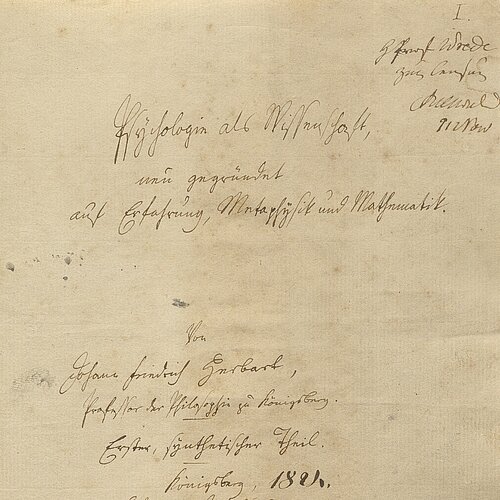 I.
H Prof Wrede
zur Censur
Psychologie als Wissenschaft,
neu gegründet
auf Erfahrung, Metaphysik und Mathematik.
Von
Johann Friedrich Herbart,
Professor der Philosophie zu Königsberg.
Erster, synthetischer Theil.
Königsberg, 1824.